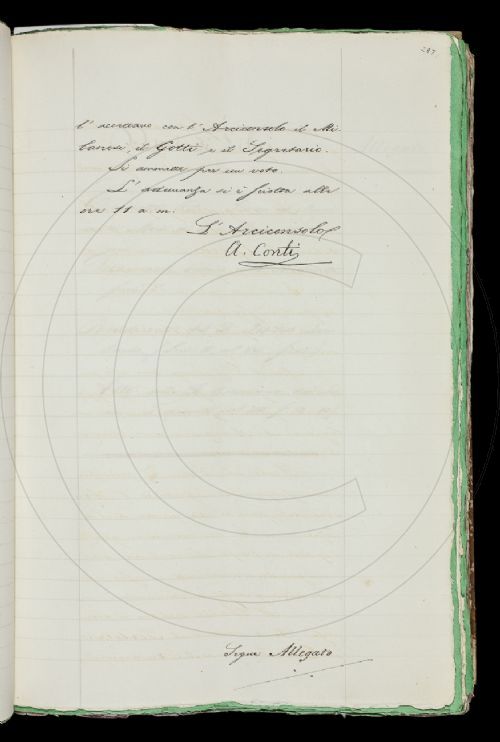 l' accettano con l'Arciconsolo il Mi-
lanesi, il Gotti e il Segretario.
Si ammette per un voto.
L' adunanza si è sciolta alle
ore 11 a m.
L'Arciconsolo
A. Conti
Segue Allegato